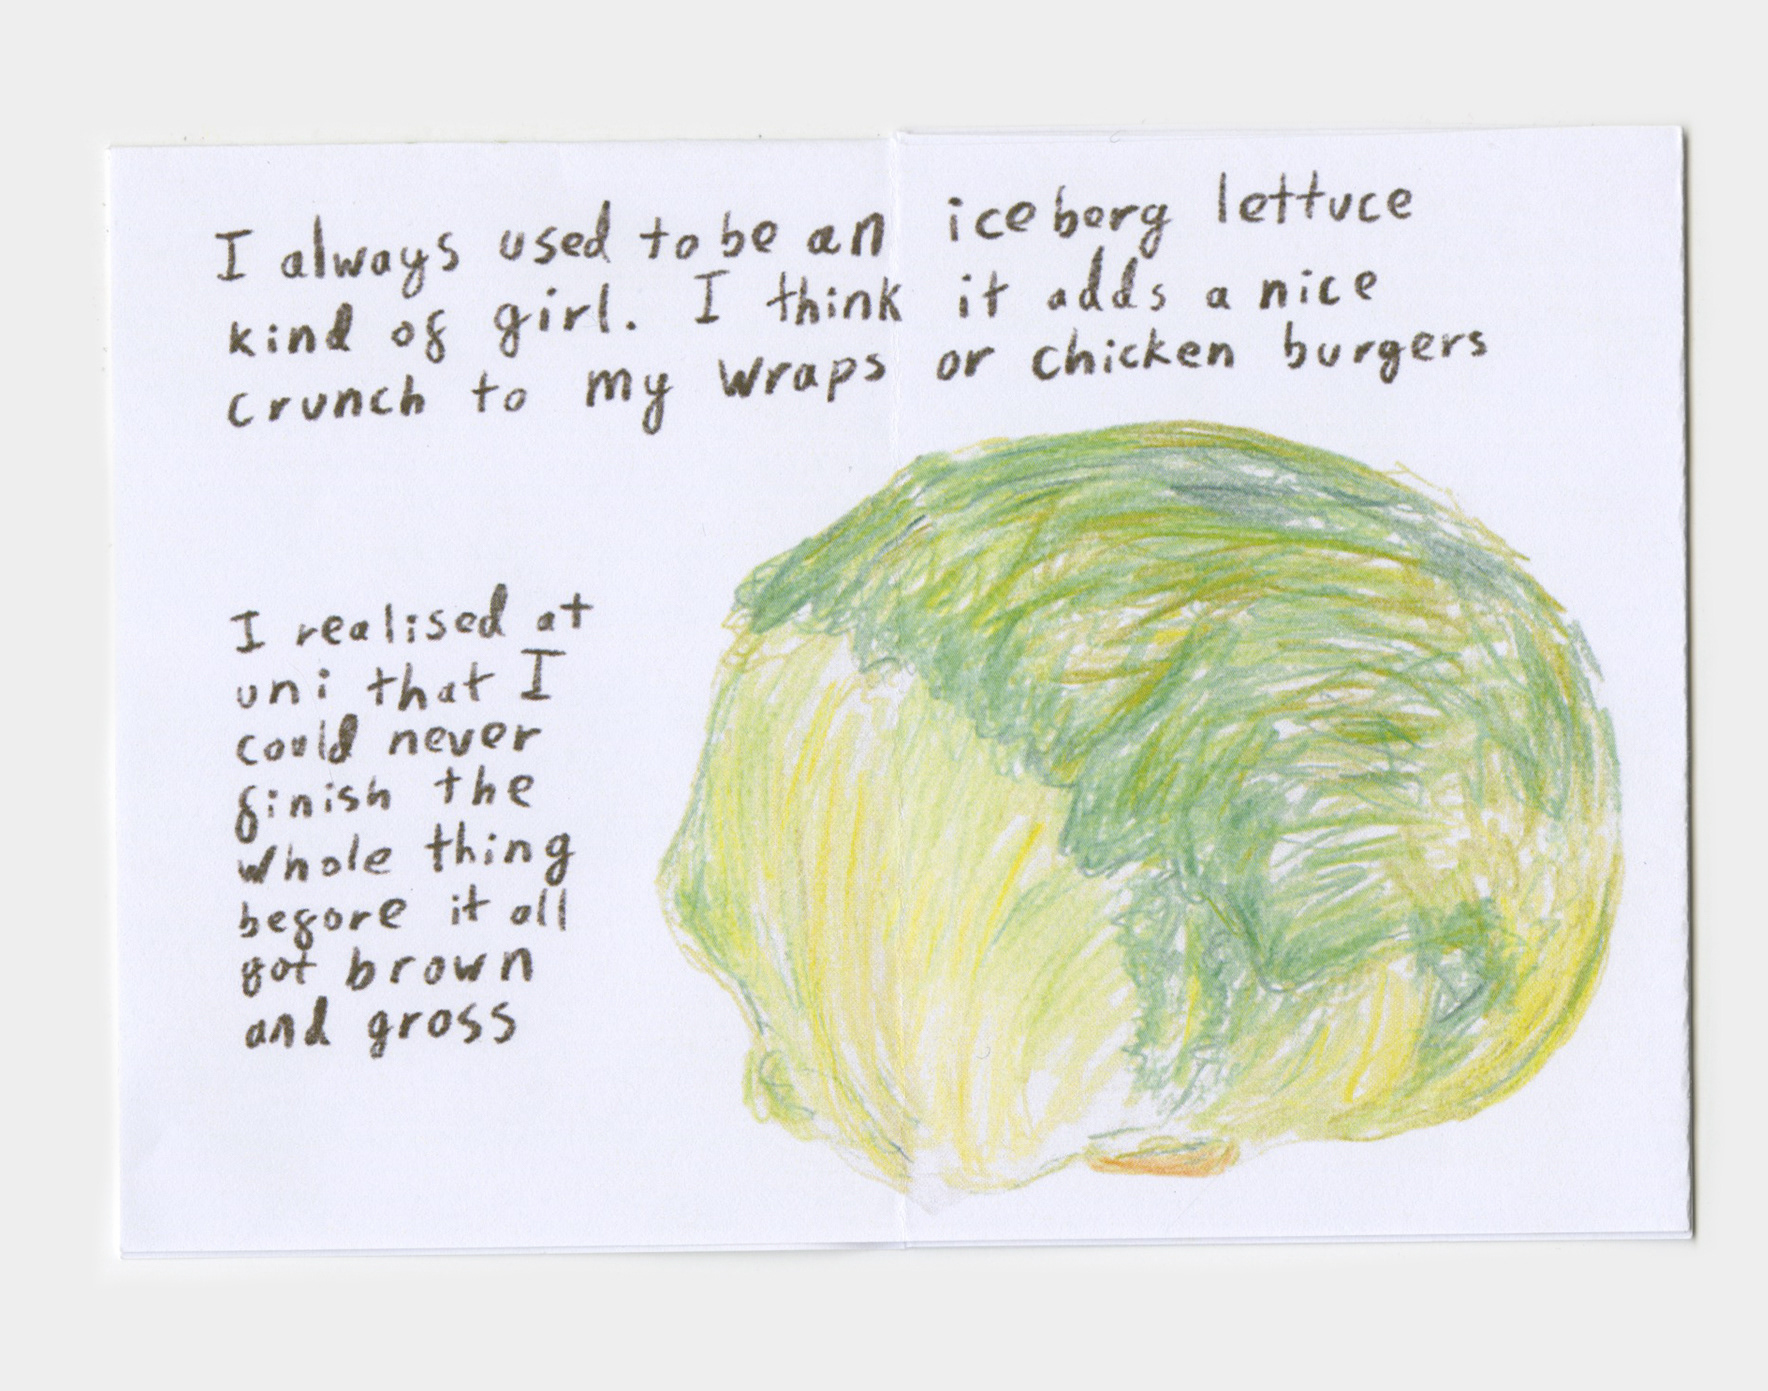 I always used to be an iceberg lettuce
kind of girl. I think it adds a nice
crunch to my wraps or chicken burgers
I realised at
uni that I
could never
finish the
whole thing
before it all
got brown
and gross